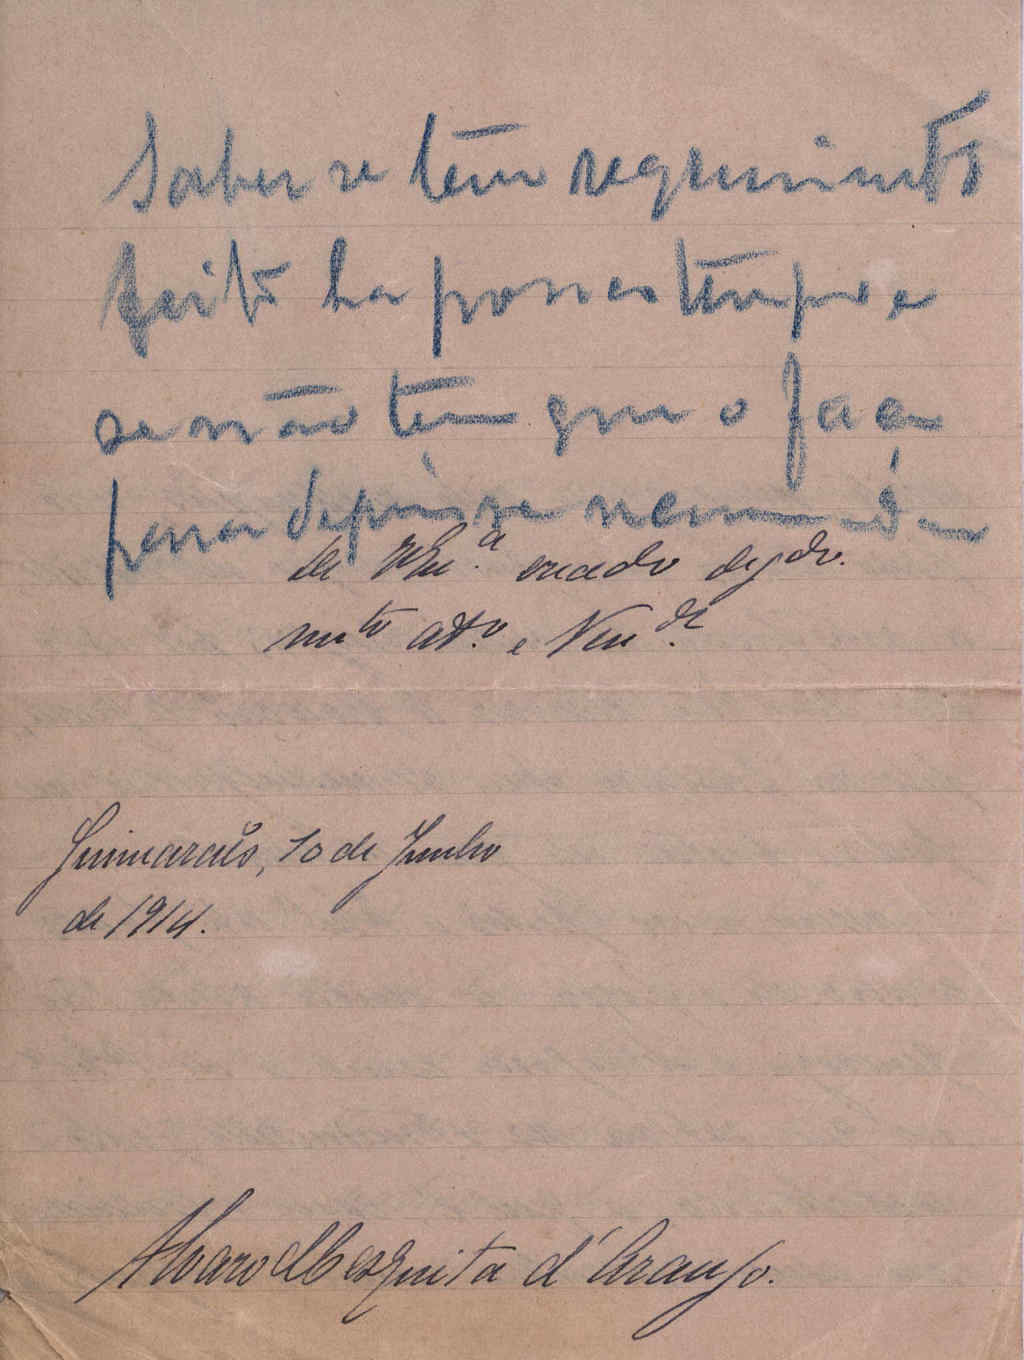 Saber se tem requerimento
feito ha pouco tempo e
se não tem que o faça
para depois se recomendar
de V. Ex.ª creado
mto att.º e Ven.dr
Guimarães, 10 de Junho
de 1914.
Alvaro Mesquita d'Araujo.